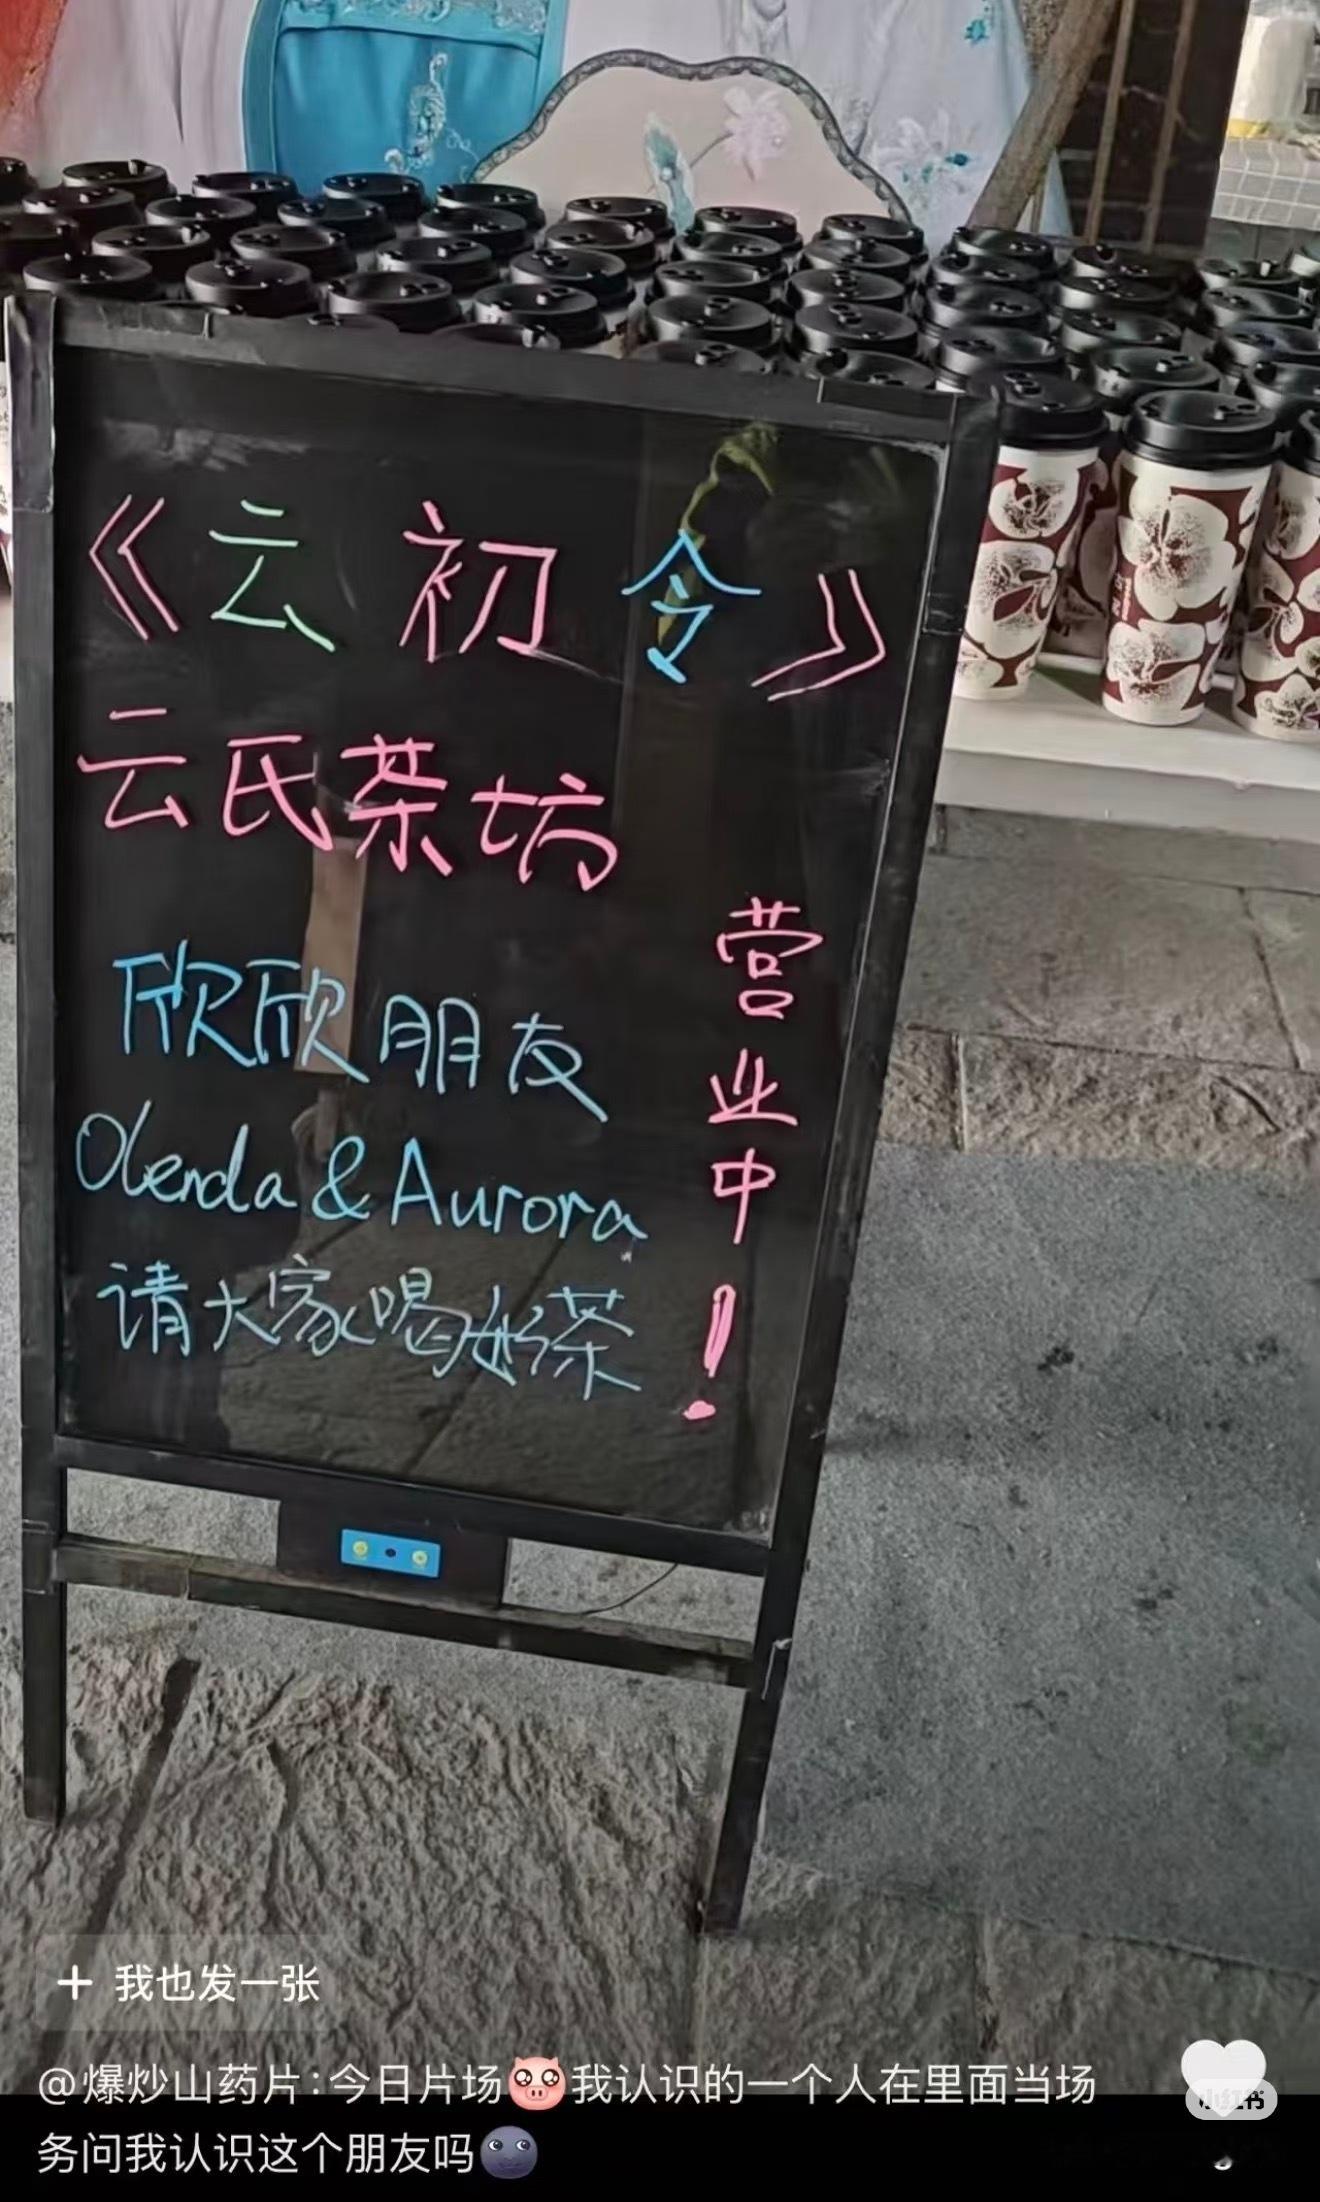 《云初令》
云氏茶坊
欣欣朋友
Olenda & Aurora
请大家喝奶茶
营业中!
+ 我也发一张
@爆炒山药片:今日片场🐷我认识的一个人在里面当场
务问我认识这个朋友吗🌚
小红书